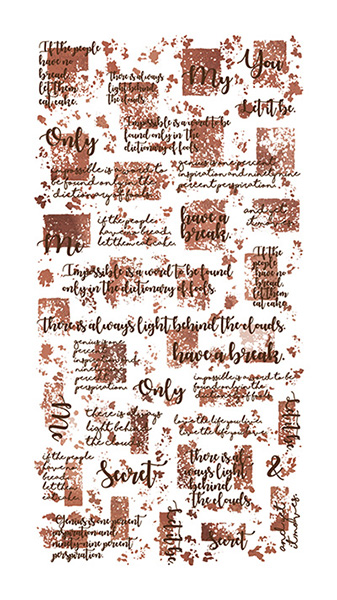 If the people
have no
bread,
let them
eat cake.
There is always
light behind
the clouds.
My
You
Let it be
Only
Impossible is a word to be
found only in the
dictionary of fools.
impossible is a word to
be found only in the
dictionary of fools.
genius is one percent
inspiration and ninety nine
percent perspiration.
if the people
have no bread,
let them eat cake.
have a
break.
Me
If the
people
have no
bread,
let them
eat cake.
Impossible is a word to be found
only in the dictionary of fools.
There is always light behind the clouds.
genius is one
percent
inspiration and
ninety nine
percent
perspiration
have a break.
Only
impossible is a word to be
found only in the
dictionary of fools.
My
there is always
light behind
the clouds
love the life you live.
live the life you love.
Let it be
if the people
have no
bread,
let them
eat cake.
Secret
There is al
ways light
behind
the clouds.
&
Genius is one percent
inspiration and
ninety-nine percent
perspiration.
Let it be
Secret